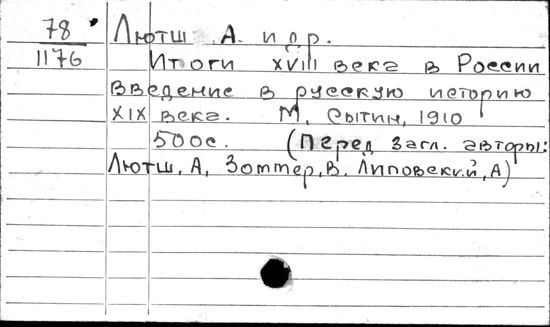 78 Лютш А. и др.
1176 Итоги XVIII века в России
введение в русскую историю
XIX века. М. Сытин, 1910
500с. (Перед загл. авторы:
Лютш, А, Зоммер, В. Липовский, А)